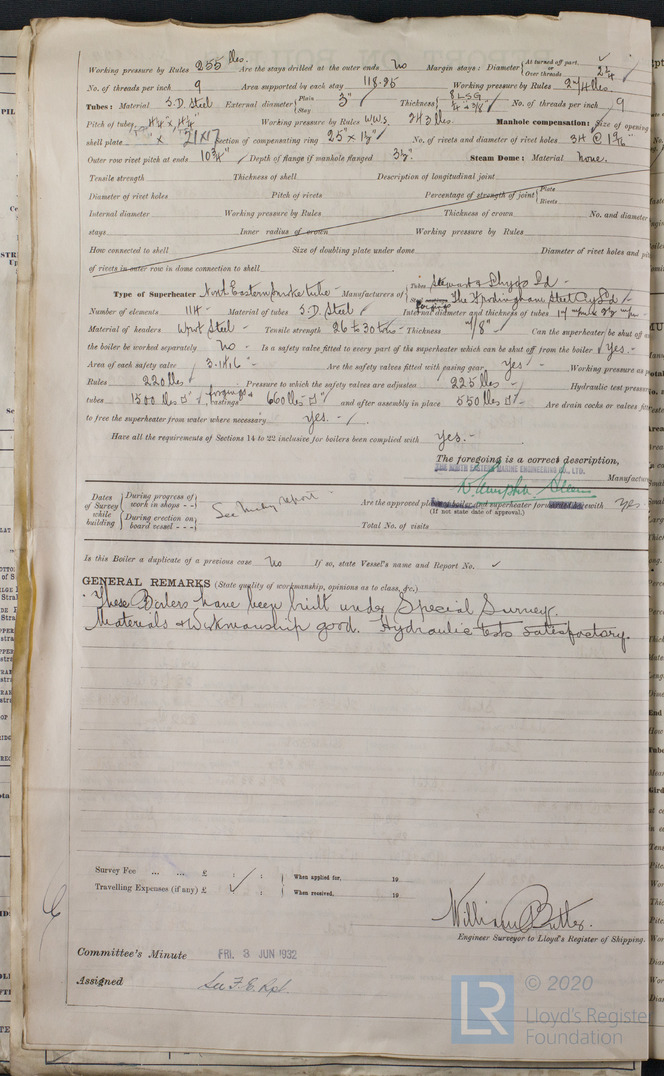 Working pressure by Rules 255 lbs. Are the stays drilled at the outer ends No Margin stays: Diameter { At turned off part, or Over threads 2¼
No. of threads per inch 9 Area supported by each stay 118.25 Working pressure by Rules 274 lbs.
Tubes: Material S.D. Steel External diameter { Plain Stay 3" Thickness { 8 LSG No. of threads per inch 9
Pitch of tubes Working pressure by Rules W.W.S. 243 lbs Manhole compensation: Size of opening
shell plate x 21 x 17 Section of compensating ring 25" x 1½" No. of rivets and diameter of rivet holes 34 @
Outer row rivet pitch at ends 10¾" Depth of flange if manhole flanged 3½" Steam Dome: Material None.
Tensile strength Thickness of shell Description of longitudinal joint
Diameter of rivet holes Pitch of rivets Percentage of strength of joint { Plate Rivets
Internal diameter Working pressure by Rules Thickness of crown No. and diameter
stays Inner radius of crown Working pressure by Rules
How connected to shell Size of doubling plate under dome Diameter of rivet holes and
of rivets in outer row in dome connection to shell
Type of Superheater North Eastern smoke tube - Manufacturers of { Tubes Stewarts & Lloyds Ld
Number of elements 114 Material of tubes S.D. Steel Internal diameter and thickness of tubes
Material of headers Wrot Steel - Tensile strength 26 to 30 tons - Thickness Can the superheater be shut off
the boiler be worked separately No - Is a safety valve fitted to every part of the superheater which can be shut off from the boiler Yes. -
Area of each safety valve 3.1416 Are the safety valves fitted with easing gear Yes - Working pressure as
Rules 220 lbs Pressure to which the safety valves are adjusted 225 lbs - Hydraulic test pressure
tubes 1500 lbs □" forgings & castings 660 lbs □" and after assembly in place 550 lbs □" - Are drain cocks or valves
to free the superheater from water where necessary Yes. -
Have all the requirements of Sections 14 to 22 inclusive for boilers been complied with Yes. -
The foregoing is a correct description,
THE NORTH EASTERN MARINE ENGINEERING CO., LTD.
Manufactu
Dates of Survey while building { During progress of work in shops - - { During erection on board vessel - - - See Mchy report Are the approved plans of boiler and superheater forwarded herewith Yes
(If not state date of approval.)
Total No. of visits
Is this Boiler a duplicate of a previous case No If so, state Vessel's name and Report No. ✓
GENERAL REMARKS (State quality of workmanship, opinions as to class, &c.)
These Boilers have been built under Special Survey.
Materials & Workmanship good. Hydraulic tests satisfactory.
Survey Fee ... ... £ : : When applied for, 19
Travelling Expenses (if any) £ : When received, 19
William Butler.
Engineer Surveyor to Lloyd's Register of Shipping.
Committee's Minute FRI. 3 JUN 1932
Assigned See F.E. Rpt.
LR © 2020
Lloyd's Registe
Foundation